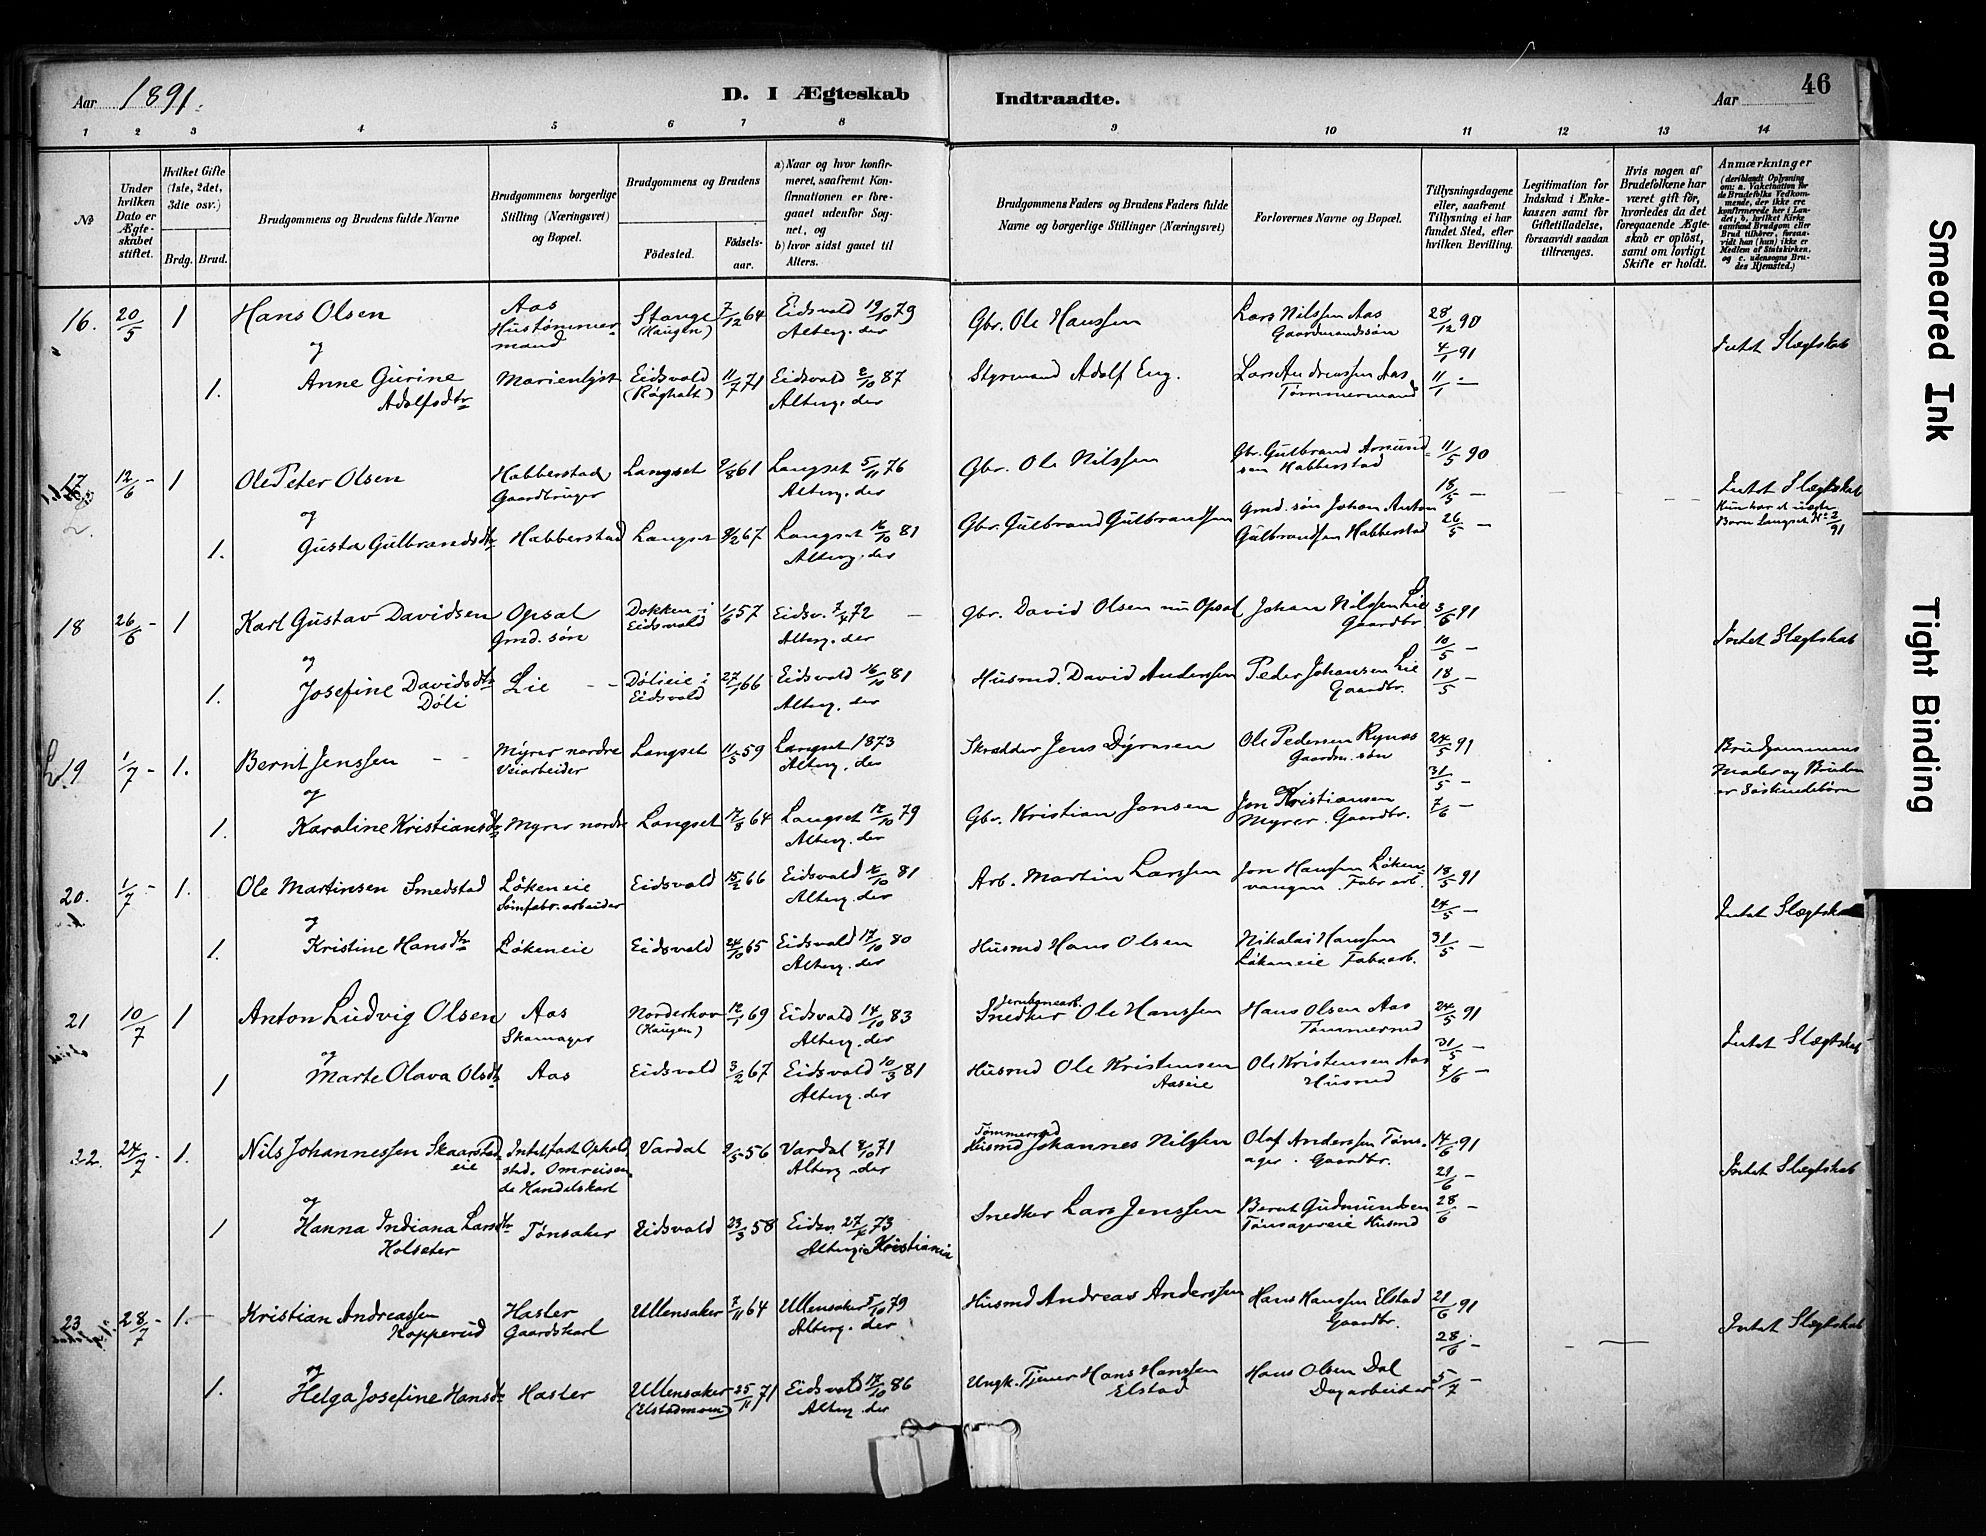 Aar 1891.
D. I Ægteskab Indtraadte.
Aar
46
1 2 3 4 5 6 7 8 9 10 11 12 13 14
№
Under hvilken Dato er Ægteskabet stiftet.
Hvilket Gifte (1ste, 2det, 3die osv.)
Brdg. Brud.
Brudgommens og Brudens fulde Navne
Brudgommens borgerlige Stilling (Næringsvei) og Bopæl.
Brudgommens og Brudens
Fødested. Fødselsaar.
a) Naar og hvor konfirmeret, saafremt Konfirmationen er foregaaet udenfor Sognet, og
b) hvor sidst gaaet til Alters.
Brudgommens Faders og Brudens Faders fulde Navne og borgerlige Stillinger (Næringsvei)
Forlovernes Navne og Bopæl.
Tillysningsdagene eller, saafremt Tillysning ei har fundet Sted, efter hvilken Bevilling.
Legitimation for Indskud i Enkekassen samt for Giftetilladelse, forsaavidt saadan tiltrænges.
Hvis nogen af Brudefolkene har været gift før, hvorledes da det foregaaende Ægteskab er opløst, samt om lovligt Skifte er holdt.
Anmærkninger (deriblandt Oplysning om: a. Vaccination for de Brudefolks Vedkommende, der ikke ere konfirmerede her i Landet; b. hvilket Kirkesamfund Brudgom eller Brud tilhører, forsaavidt han (hun) ikke er Medlem af Statskirken, og c. udensogns Brudes Hjemsted.)
16. 20/5 1 Hans Olsen Aas Hustømmermand Stange (Haugen) 7/12 64 Eidsvold 19/10 79 Alterg. der Gbr. Ole Hanssen Lars Nilssen Aas Gaardmandssøn 28/12 90 Intet Slægtskab
og 4/1 91
1. Anne Gurine Adolfsdtr Marienlyst Eidsvold (Røgholt) 11/7 71 Eidsvold 2/10 87 Alterg. der Styrmand Adolf Eng. Lars Andreassen Aas Tømmermand 11/1 —
17 12/6 - 1 Ole Peter Olsen Habberstad Gaardbruger Langset 9/8 61 Langset 5/11 76 Alterg. der Gbr. Ole Nilssen Gbr. Gulbrand Amundsen Habberstad 11/5 90 Intet Slægtskab
og 18/5 — Hun har et uægte Barn Langset № 2/91
1. Gusta Gulbrandsdtr Habberstad Langset 9/2 67 Langset 16/10 81 Alterg. der Gbr. Gulbrand Gulbrandsen Grnd. søn Johan Anton Gulbrandsen Habberstad 26/5 —
18 26/6 - 1 Karl Gustav Davidsen Opsal Grnd. søn Dokken i Eidsvold 1/6 57 Eidsv. 7/4 72 — Alterg. der Gbr. David Olsen nu Opsal Johan Nilssen Lie Gaardbr 3/6 91 Intet Slægtskab
og 10/5 —
1. Josefine Davidsdtr Døli Lie Dølieie i Eidsvold 27/1 66 Eidsvold 16/10 81 Alterg. der Husmd. David Anderssen Peder Johansen Lie Gaardbr. 18/5 —
19 1/7 - 1. Bernt Jenssen Myrer nordre Veiarbeider Langset 11/5 59 Langset 1873 Alterg. der Skrædder Jens Dyresen Ole Pedersen Rynas Gaardm. søn 24/5 91 Brudgommens Moder og Bruden er Søskendebørn
og 31/5 —
1. Karoline Kristiansdtr Myrer nordre Langset 17/8 64 Langset 12/10 79 Alterg. der Gbr. Kristian Jonsen Jon Kristiansen Myrer. Gaardbr. 7/6 —
20. 1/7 - 1. Ole Martinsen Smedstad Løkeneie Sømfabr. arbeider Eidsvold 15/2 66 Eidsvold 16/10 81 Alterg. der Arb. Martin Larssen Jon Hanssen Løkenvangen. Fabr arb. 18/5 91 Intet Slægtskab
og 24/5 —
1. Kristine Hansdtr Løkeneie Eidsvold 24/10 65 Eidsvold 17/10 80 Alterg. der Husmd Hans Olsen Nikolai Hanssen Løkeneie Fabr. arb. 31/5 —
21 10/7 1 Anton Ludvig Olsen Aas Skomager Norderhov (Haugen) 12/1 69 Eidsvold 14/10 83 Alterg. der Jernbanearb. Snedker Ole Hanssen Hans Olsen Aas Tømmermd 24/5 91 Intet Slægtskab
og 31/5 —
1 Marte Olava Olsdtr Aas Eidsvold 3/2 67 Eidsvold 10/3 81 Alterg. der Husmd Ole Kristensen Aaseie Ole Kristensen Aas Husmd 7/6 —
22. 24/7 - 1. Nils Johannessen Skaarstadeie Intet fast Opholdsted. Omreisende Handelskarl Vardal 9/5 56 Vardal 8/10 71 Alterg. der Tømmermd Husmd Johannes Nilssen Olaf Anderssen Tønsager. Gaardbr. 14/6 91 Intet Slægtskab
og 21/6 —
1 Hanna Indiana Larsdtr Holseter Tønsaker Eidsvold 23/3 58 Eidsv. 27/4 73 Alterg. i Kristiania Snedker Lars Jenssen Bernt Gudmundsen Tønsagereie Husmd 28/6 —
23 28/7 - 1. Kristian Andreassen Kopperud Hasler Gaardskarl Ullensaker 7/11 64 Ullensaker 5/10 79 Alterg. der Husmd Andreas Anderssen Hans Hanssen Elstad Gaardbr. 21/6 91 Intet Slægtskab
og 28/6 —
1. Helga Josefine Hansdtr Hasler Ullensaker (Elstadmoen) 25/11 71 Eidsvold 17/10 86 Alterg. der Ungk. Tjener Hans Hanssen Elstad Hans Olsen Dal Dagarbeider 5/7 —
Smeared Ink
Tight Binding